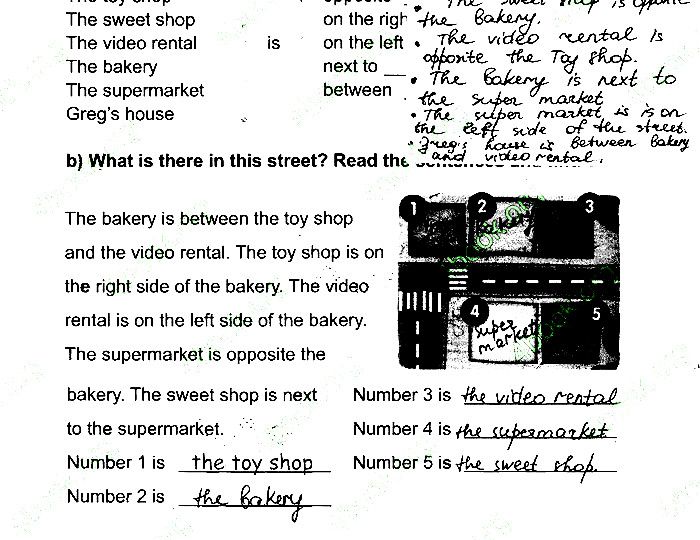 The toy shop
The sweet shop on the righ
The video rental is on the left
The bakery next to __
The supermarket between
Greg's house
opposite
The sweet shop is opposite
the Bakery.
• The video rental is
opposite the Toy shop.
• The Bakery is next to
the super market
• The super market is is on
the left side of the street.
• Greg's house is Between Bakery
and video rental.
b) What is there in this street? Read the
The bakery is between the toy shop
and the video rental. The toy shop is on
the right side of the bakery. The video
rental is on the left side of the bakery.
The supermarket is opposite the
bakery. The sweet shop is next
to the supermarket.
1 2 3
bakery
4 5
super
market
Number 1 is the toy shop
Number 2 is the bakery
Number 3 is the video rental
Number 4 is the supermarket
Number 5 is the sweet shop.